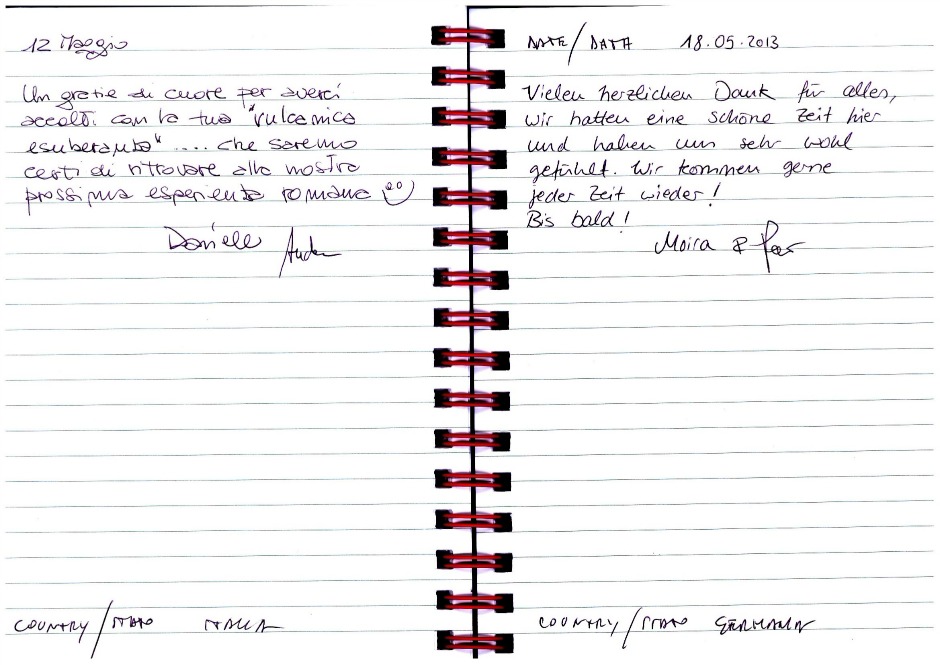 12 Maggio
Un grazie di cuore per averci
accolti con la tua "vulcanica
esuberanza" .... che saremo
certi di ritrovare alla nostra
prossima esperienza romana
Daniele
DATE / DATA 18.05.2013
Vielen herzlichen Dank für alles,
wir hatten eine schöne Zeit hier
und haben uns sehr wohl
gefühlt. Wir kommen gerne
jeder Zeit wieder!
Bis bald!
Moira &
COUNTRY / STATO ITALIA
COUNTRY / STATO GERMANIA